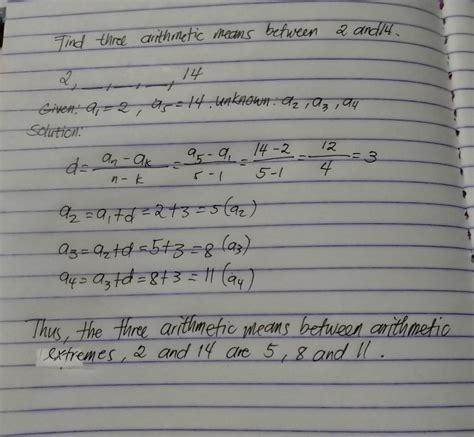 Find three arithmetic means between 2 and 14.
2, __, __, __, 14
Given: a₁=2, a₅=14. unknown: a₂, a₃, a₄
Solution:
d = (aₙ - aₖ)/(n - k) = (a₅ - a₁)/(5 - 1) = (14 - 2)/(5 - 1) = 12/4 = 3
a₂ = a₁+d = 2+3 = 5 (a₂)
a₃ = a₂+d = 5+3 = 8 (a₃)
a₄ = a₃+d = 8+3 = 11 (a₄)
Thus, the three arithmetic means between arithmetic
extremes, 2 and 14 are 5, 8 and 11.